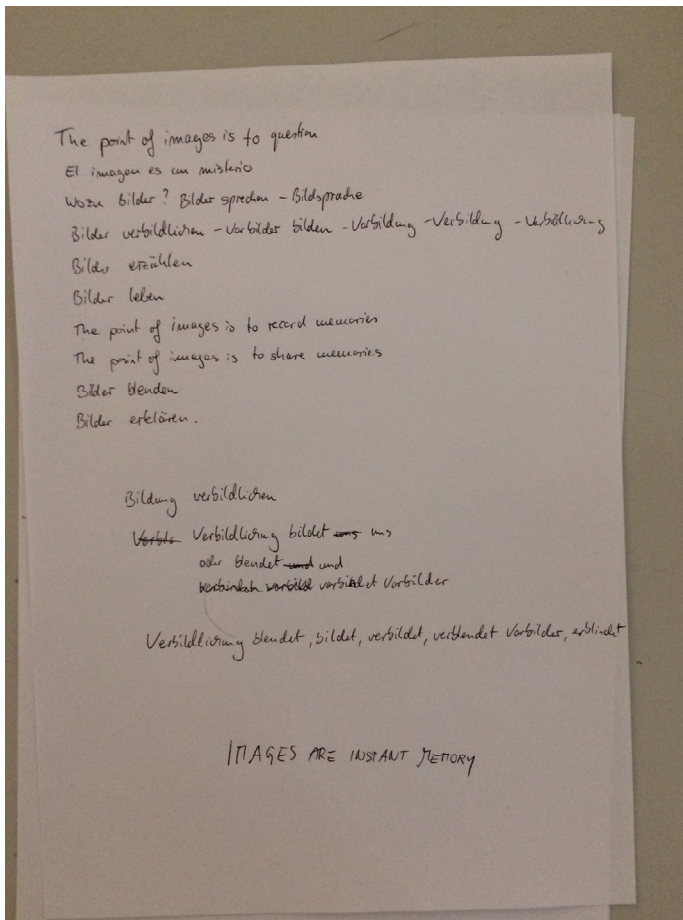 The point of images is to question
El imagen es un misterio
Wozu Bilder? Bilder sprechen - Bildsprache
Bilder verbildlichen - Vorbilder bilden - Vorbildung - Verbildung - Verbildlichung
Bilder erzählen
Bilder leben
The point of images is to record memories
The point of images is to share memories
Bilder blenden
Bilder erklären.
Bildung verbildlichen
Verbildlichung bildet uns
oder blendet und
verbildet Vorbilder
Verbildlichung blendet, bildet, verbildet, verblendet Vorbilder, erblindet
IMAGES ARE INSTANT MEMORY